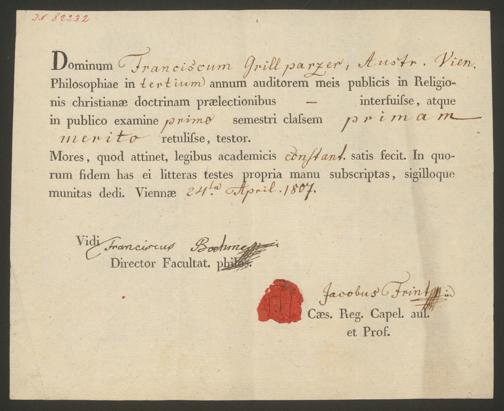 I.N. 82232
Dominum Franciscum Grillparzer, Austr. Vien.
Philosophiae in tertium annum auditorem meis publicis in Religio-
nis christianæ doctrinam prælectionibus — interfuiſse, atque
in publico examine primo semestri claſsem primam
merito retuliſse, testor.
Mores, quod attinet, legibus academicis constant. satis fecit. In quo-
rum fidem has ei litteras testes propria manu subscriptas, sigilloque
munitas dedi. Viennæ 24ta April. 1807.
Vidi Franciscus Boehme
Director Facultat. philos.
Jacobus Frint
Cæs. Reg. Capel. aul.
et Prof.